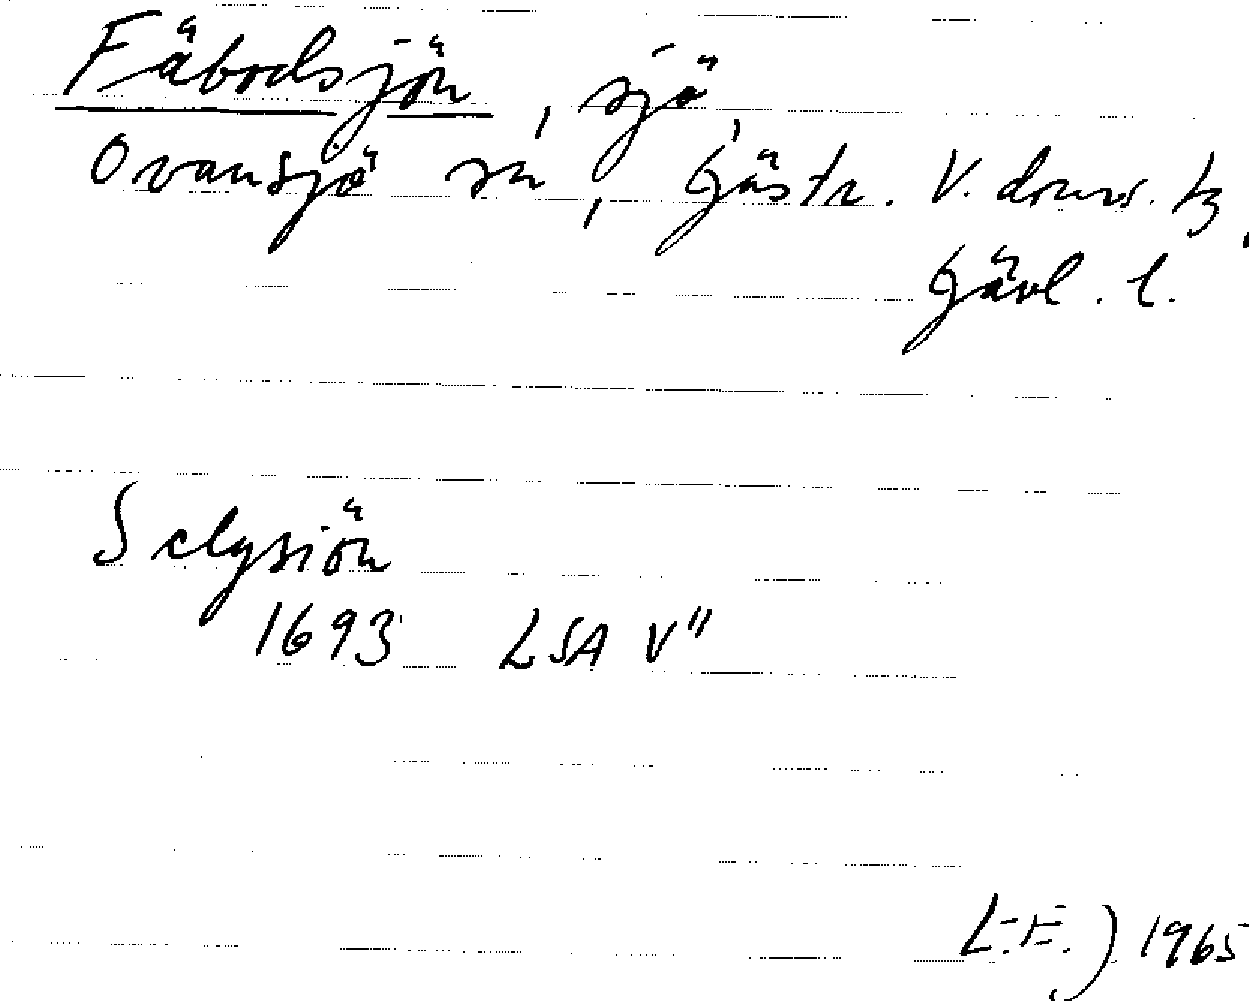 Fäbodsjön, sjö,
Ovansjö sn, Gästr. V. doms. tg,
Gävl. l.
Selgsiön
1693 LSA V"
L.E.) 1965